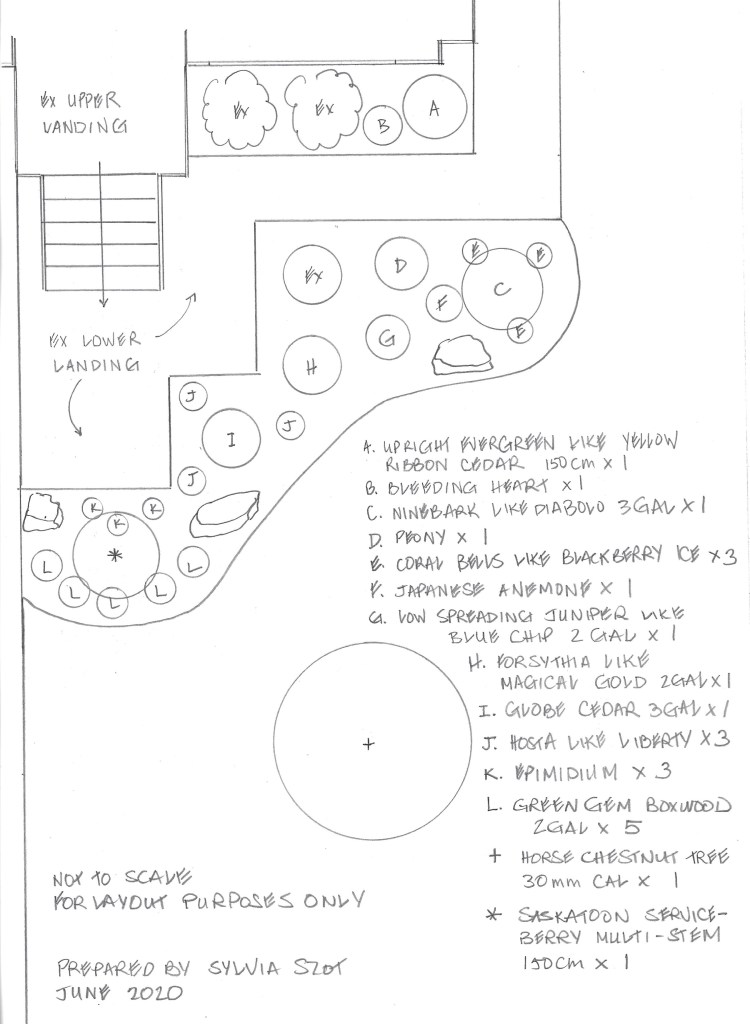 EX UPPER
LANDING
EX
EX
B
A
EX LOWER
LANDING
EX
D
E
E
C
F
E
G
H
J
I
J
J
K
K
K
*
L
L
L
L
L
A. UPRIGHT EVERGREEN LIKE YELLOW
RIBBON CEDAR 150CM X 1
B. BLEEDING HEART X 1
C. NINEBARK LIKE DIABOLO 3GAL X 1
D. PEONY X 1
E. CORAL BELLS LIKE BLACKBERRY ICE X 3
F. JAPANESE ANEMONE X 1
G. LOW SPREADING JUNIPER LIKE
BLUE CHIP 2 GAL X 1
H. FORSYTHIA LIKE
MAGICAL GOLD 2GAL X 1
I. GLOBE CEDAR 3GAL X 1
J. HOSTA LIKE LIBERTY X 3
K. EPIMIDIUM X 3
L. GREEN GEM BOXWOOD
2GAL X 5
+ HORSE CHESTNUT TREE
30mm CAL X 1
* SASKATOON SERVICE-
BERRY MULTI-STEM
150CM X 1
+
NOT TO SCALE
FOR LAYOUT PURPOSES ONLY
PREPARED BY SYLVIA SZOT
JUNE 2020